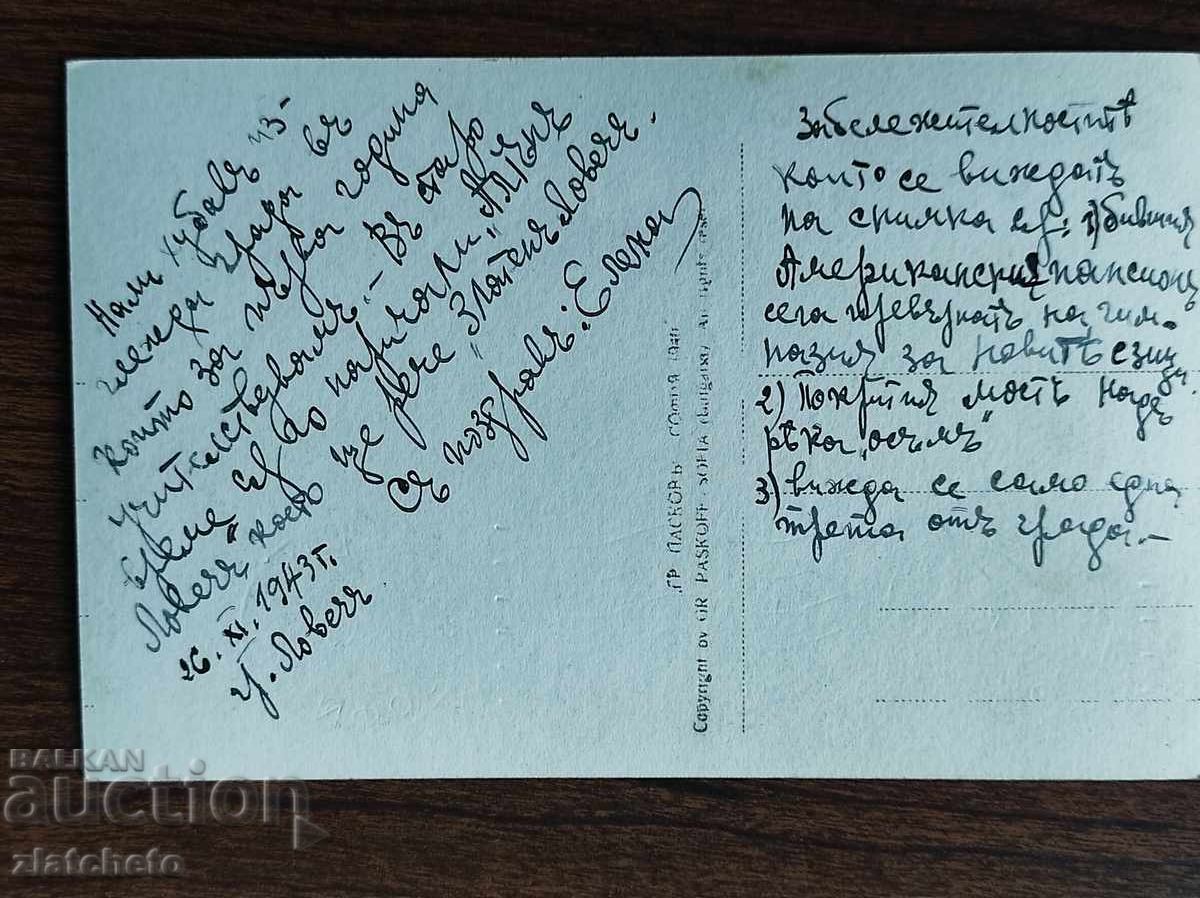 Нали хубавъ из-
глежда града въ
който за първа година
учителствувамъ. – Въ старо
време е било наричали „Алтънъ
Ловечъ“ което ще рече „Златенъ Ловечъ.
Съ поздравъ: Елена
26. XI. 1943 г.
гр. Ловечъ.
ГР ПАСКОВЪ СОФИЯ
Copyright by GR PASKOFF SOFIA (Bulgaria) All rights
Забележителноститѣ
които се виждатъ
на снимка сѫ: 1) бившия
Американски пансионъ
сега превърнатъ на гим-
назия за новитѣ езици
2) Покрития мостъ надъ
рѣка „Осъмъ“
3) вижда се само една
трета отъ града. –
BALKAN
auction
zlatcheto